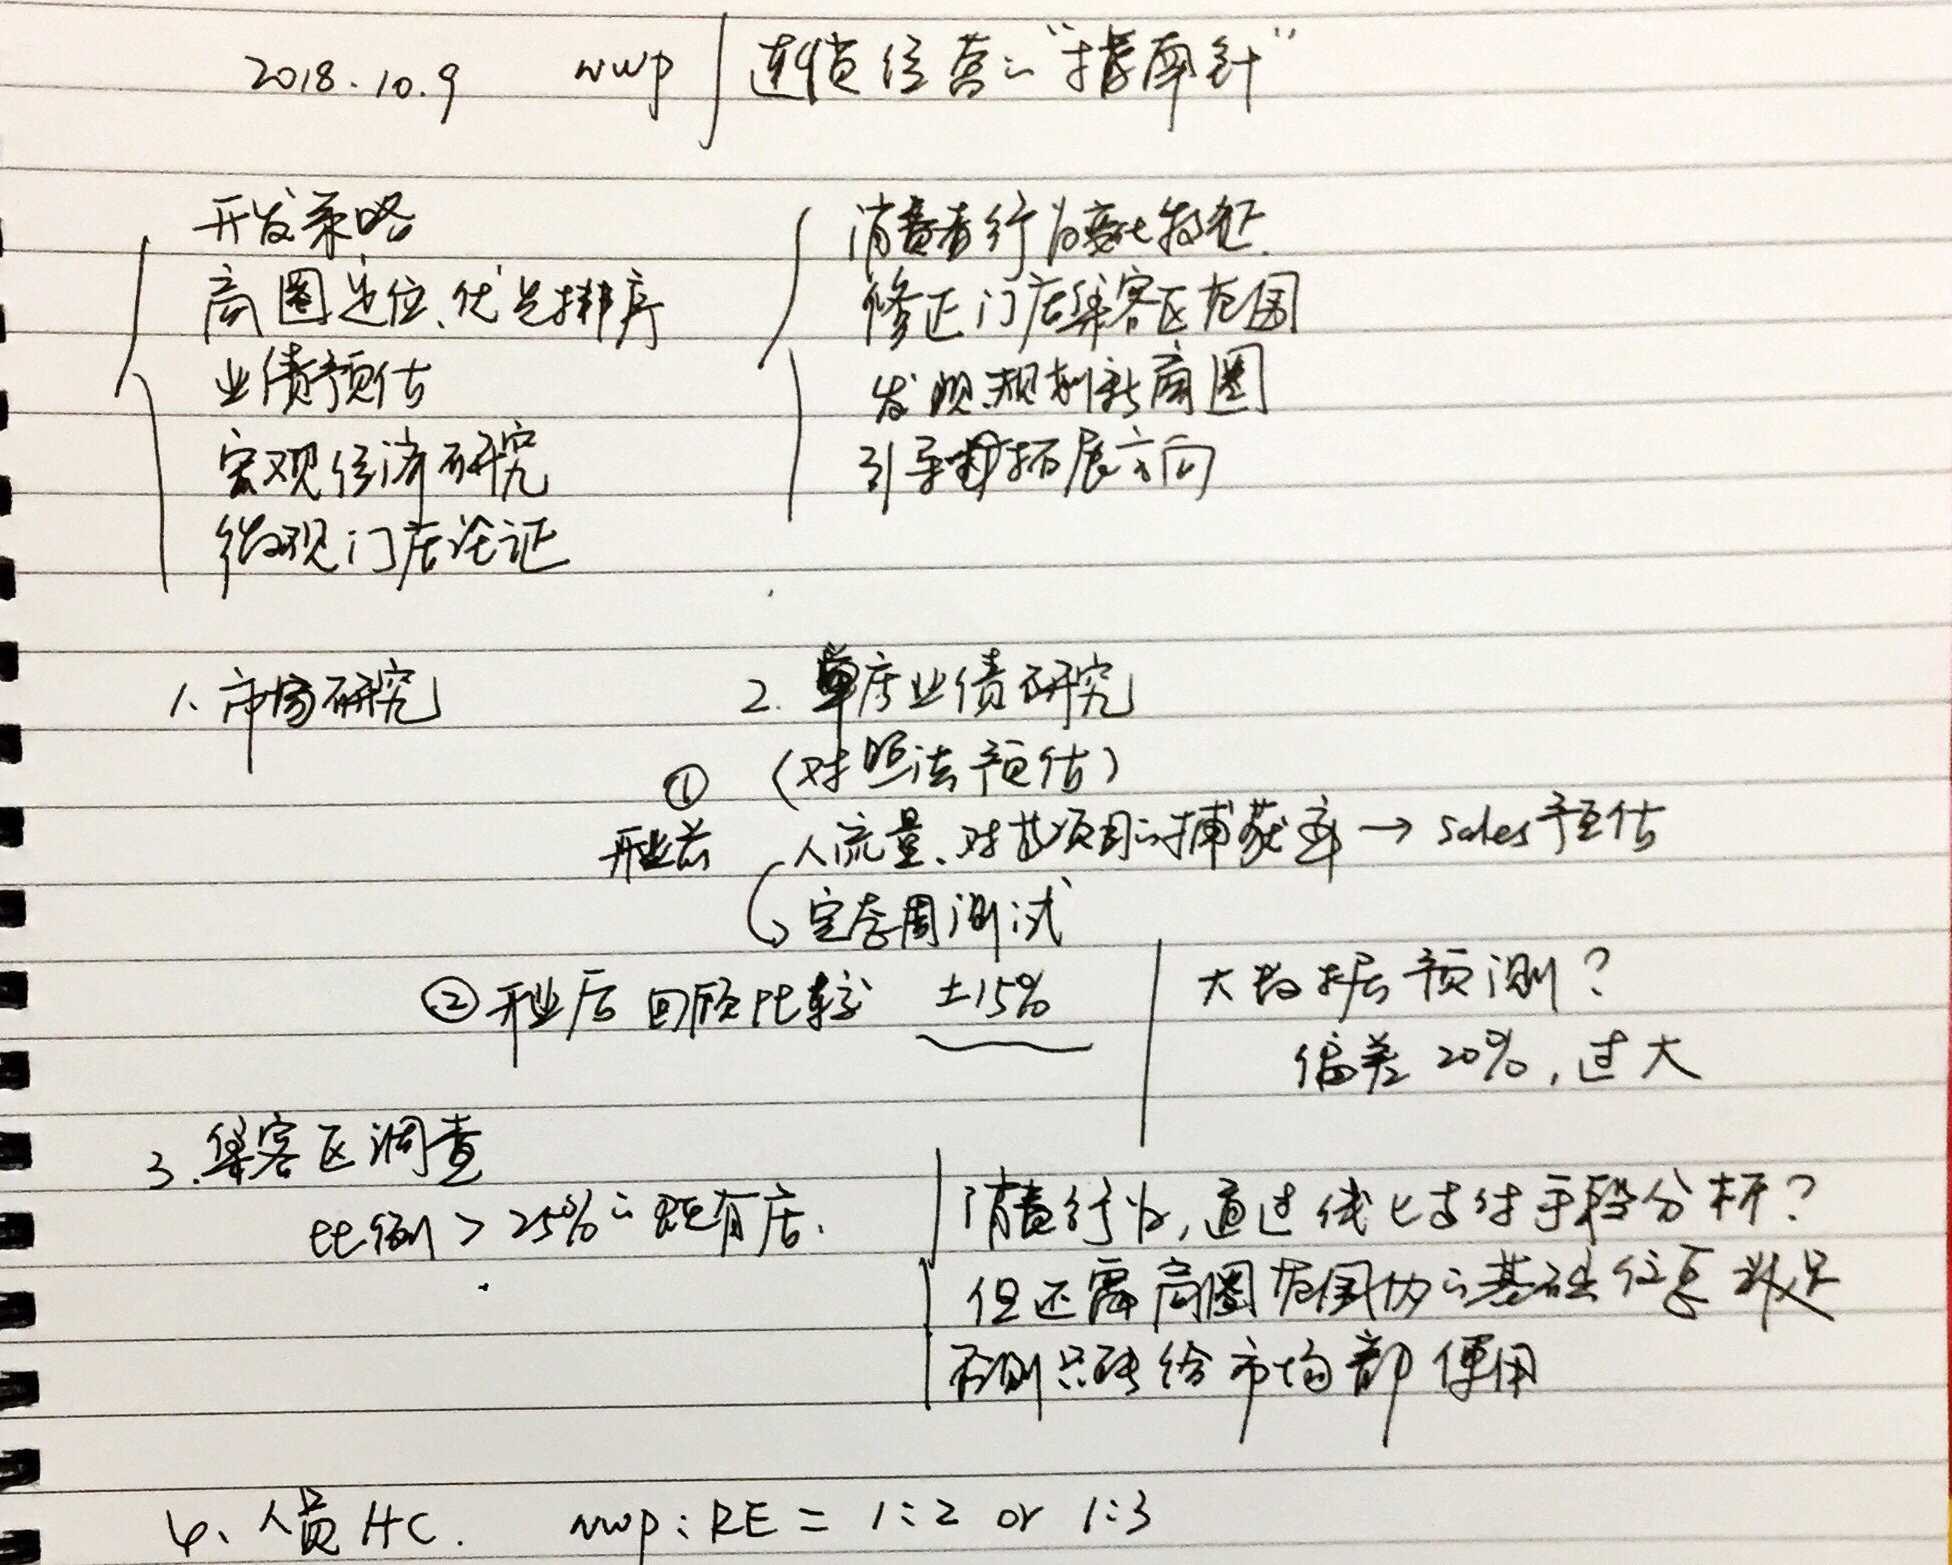 2018.10.9 NWP 连锁经营的“指南针”
开发策略
商圈定位、优先排序
业绩预估
宏观经济研究
微观门店论证
消费者行为变化特征
修正门店集客区范围
发现、规划新商圈
引导拓展方向
1. 市场研究
2. 单店业绩研究
(对照法预估)
① 开业前 人流量、对其项目的捕获率 → sales预估
定春周测试
② 开业后 回顾比较 ±15%
大数据预测?
偏差20%, 过大
3. 集客区调查
比例 > 25% 的既有店.
消费行为, 通过线上支付手段分析?
但还需商圈范围内的基础信息数据
否则只能给市场部使用
4、人员HC. NWP : RE = 1:2 or 1:3